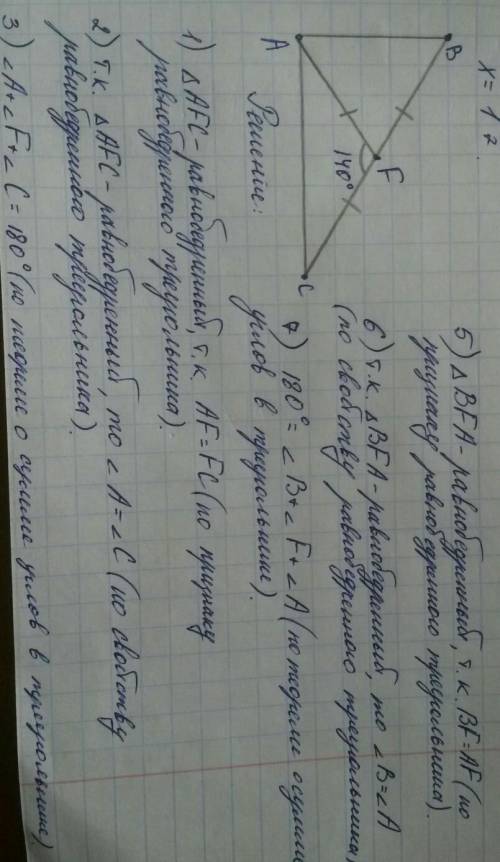 x = 1 2
A
B
C
F
140°
Решение:
1) △AFC - равнобедренный, т.к. AF = FC (по признаку
равнобедренного треугольника).
2) т.к. △AFC - равнобедренный, то ∠A = ∠C (по свойству
равнобедренного треугольника).
3) ∠A + ∠F + ∠C = 180° (по теореме о сумме углов в треугольнике)
5) △BFA - равнобедренный, т.к. BF = AF (по
признаку равнобедренного треугольника).
6) т.к. △BFA - равнобедренный, то ∠B = ∠A
(по свойству равнобедренного треугольника)
7) 180° = ∠B + ∠F + ∠A (по теореме о сумме
углов в треугольнике).